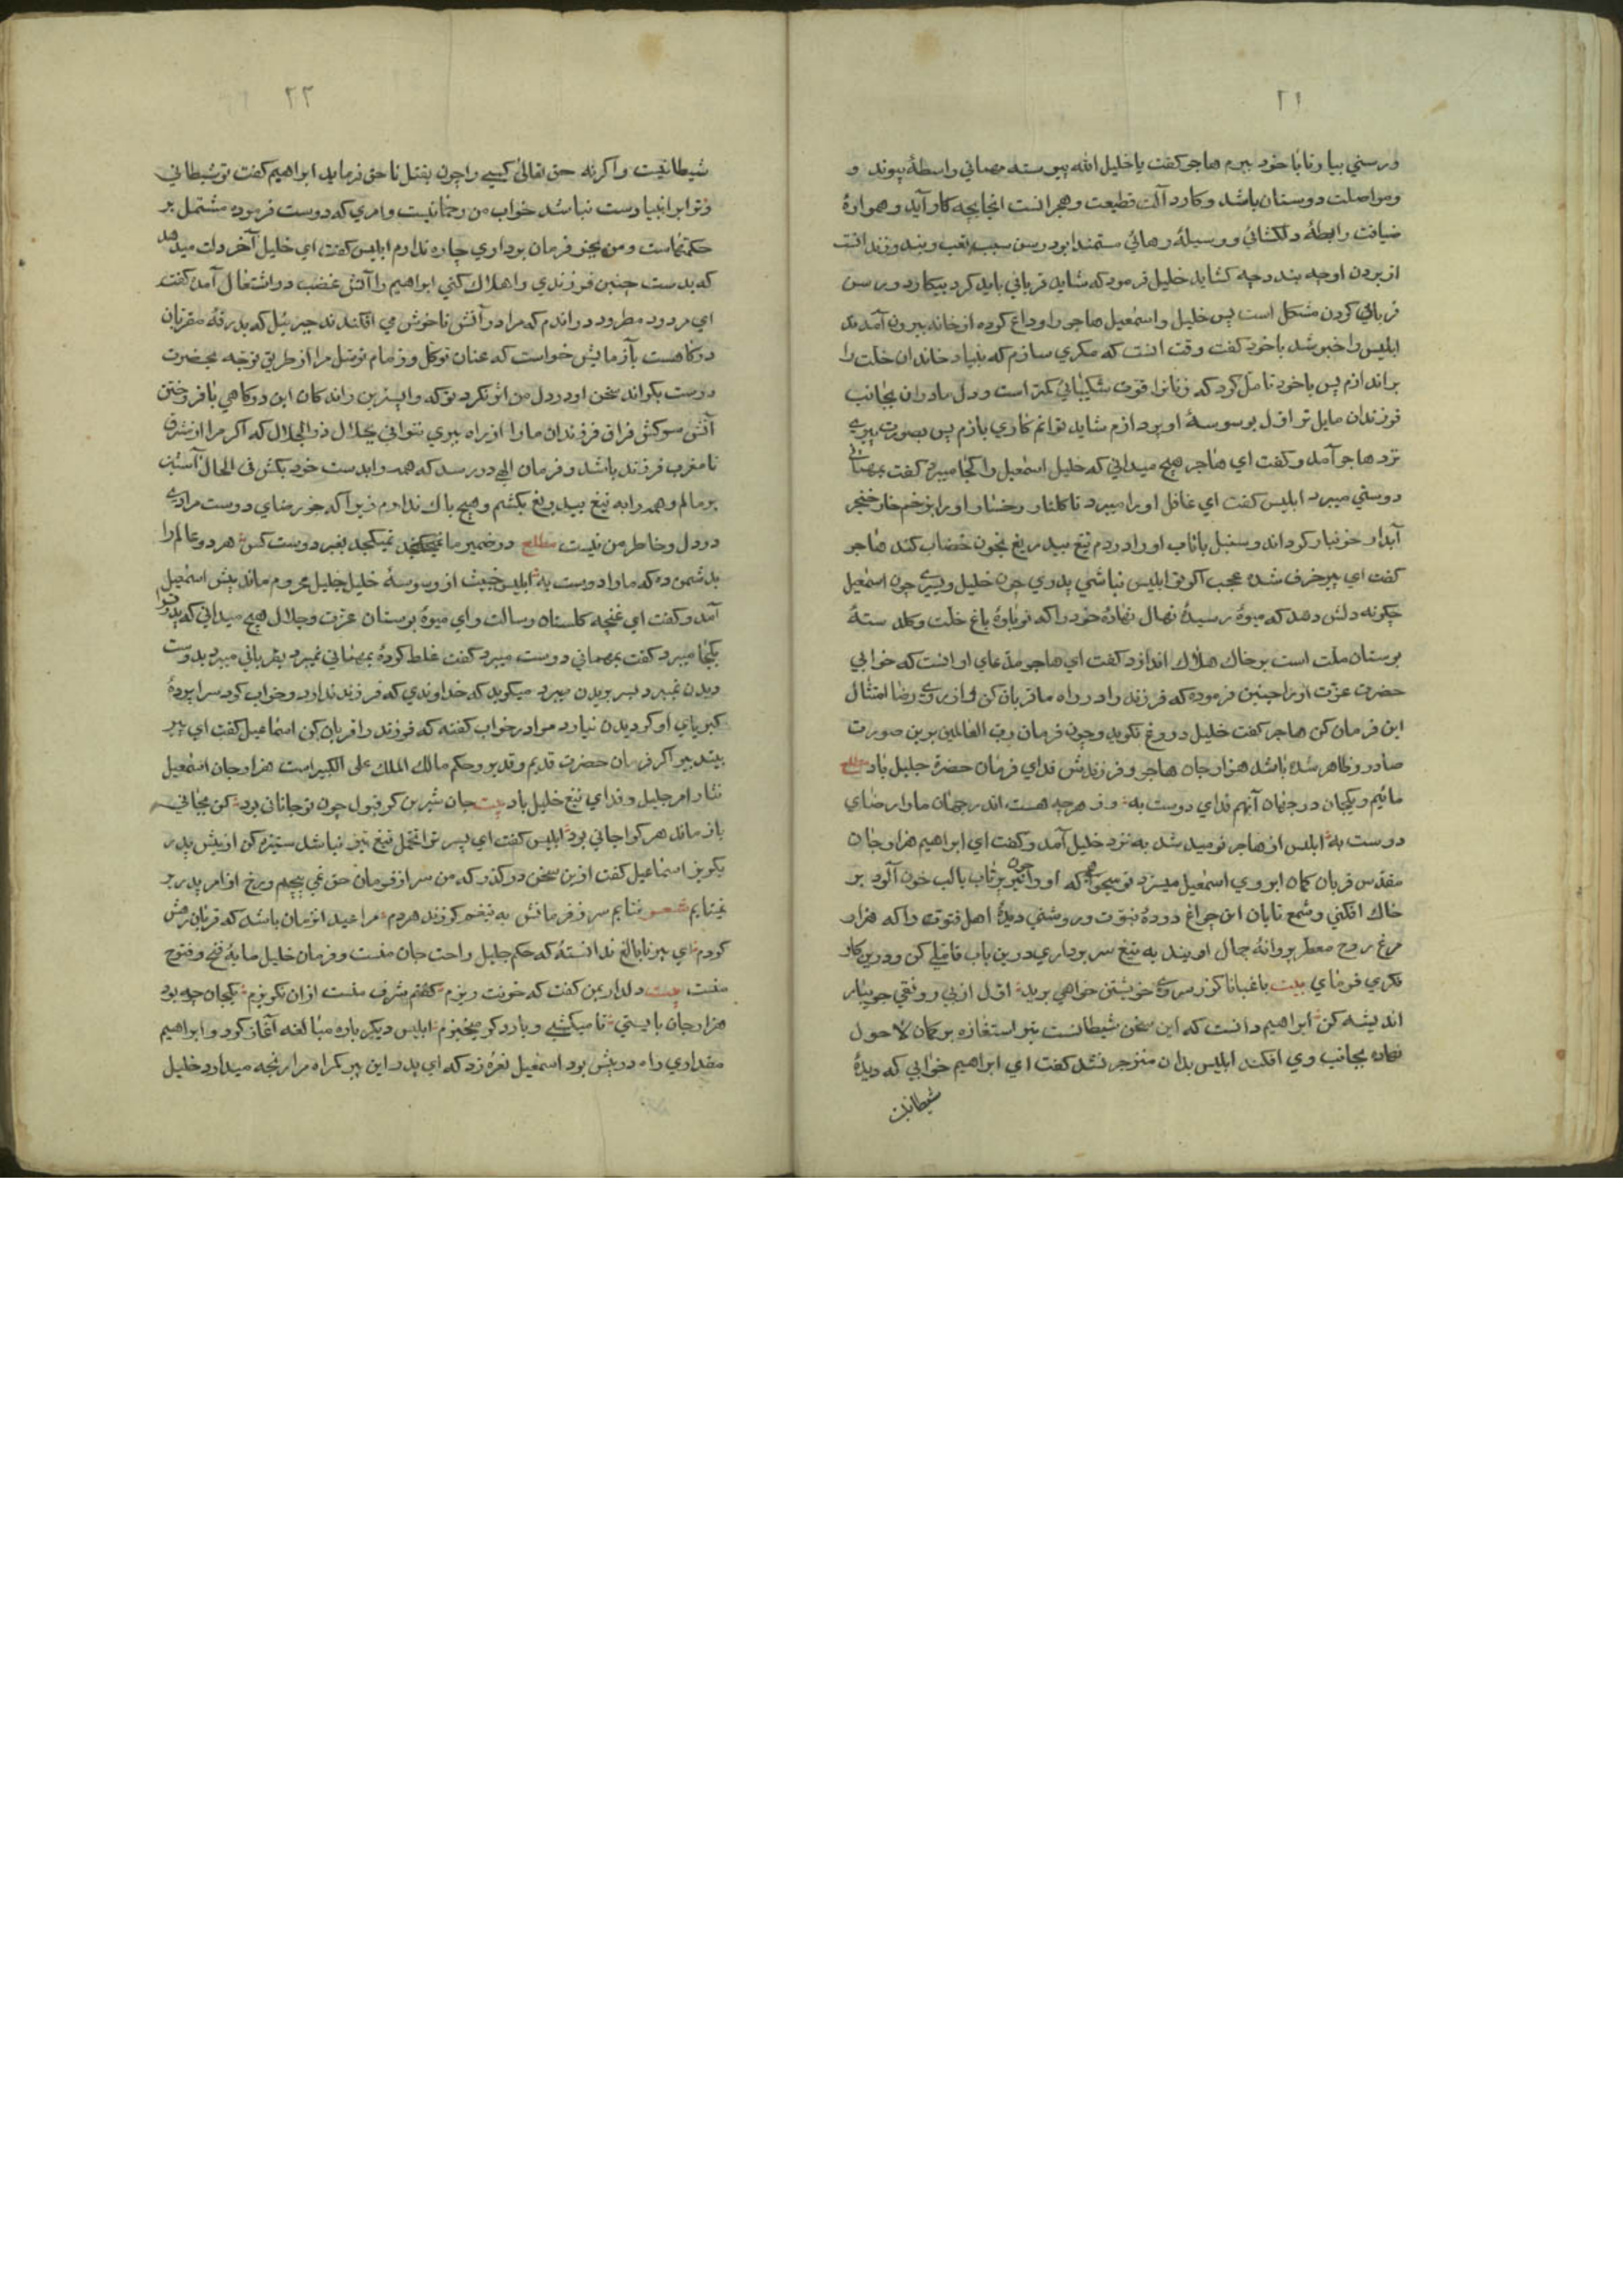 ۲۱
ورسنی بیاور تا با خود ببرم هاجر کفت یا خلیل الله پیوسته مهمانی واسطهٔ پیوند و
ومواصلت دوستان باشد وکارد آلت قطیعت وهجرانست انجا بچه کار آید وهمواره
ضیافت رابطهٔ دلکشائی ووسیلهٔ رهائی مستمندان بود رسن سبب تعب وبند وزندانست
از بردن او چه بندد چه کشاید خلیل فرمود که شاید قربانی باید کرد بیکارد ورسن
قربانی کردن مشکل است پس خلیل واسمعیل هاجر را وداع کرده از خانه بیرون آمدند
ابلیس را خبر شد با خود کفت وقت انست که مکری سازم که بنیاد خاندان خلت را
براندازم پس با خود تامل کرد که زنانرا قوت شکیبائی کمتر است ودل مادران بجانب
فرزندان مایل تر اول بوسوسهٔ او پردازم شاید توانم کاری بازم پس بصورت پیری
نزد هاجر آمد وکفت ای هاجر هیچ میدانی که خلیل اسمعیل را کجا میبرد کفت بمهمانی
دوستی میبرد ابلیس کفت ای غافل او را میبرد تا کلنار رخسار او را بزخم خار خنجر
آبدار خونبار کرداند وسنبل پرتاب او را در دم تیغ بیدریغ بخون خضاب کند هاجر
کفت ای پیر خرف شده عجب اکر تو ابلیس نباشی پدری چون خلیل وپسری چون اسمعیل
چکونه دلش دهد که میوهٔ رسیدهٔ نهال نهاده خود را که نوباوهٔ باغ خلت وکلدستهٔ
بوستان ملت است بر خاک هلاک اندازد کفت ای هاجر مدعای او انست که خوابی
حضرت عزت او را چنین فرموده که فرزند را در راه ما قربان کن واز روی رضا امتثال
این فرمان کن هاجر کفت خلیل دروغ نکوید وچون فرمان رب العالمین برین صورت
صادر وظاهر شده باشد هزار جان هاجر وفرزندش فدای فرمان حضرة جلیل باد مطلع
مائیم ویکجان در جهان آنهم فدای دوست به وز هرچه هست اندر جهان مارا رضای
دوست به ابلیس از هاجر نومید شد به نزد خلیل آمد وکفت ای ابراهیم هزار جان
مقدس قربان کمان ابروی اسمعیل میسزد تو میخواهی که او را چون تیر پرتاب با لب خون آلود بر
خاک افکنی وشمع تابان این چراغ دودهٔ نبوت وروشنی دیدهٔ اهل فتوت را که هزار
مرغ روح معطر پروانهٔ جمال اویند به تیغ سر برداری درین باب تاملی کن ودرین کار
فکری فرمای بیت باغبانا کز سر سروی خویشتن خواهی برید اول از بی رونقی جویبار
اندیشه کن ابراهیم دانست که این سخن شیطانست تیر استعاذه بر کمان لا حول
نهاده بجانب وی افکند ابلیس بدان منزجر نشد کفت ای ابراهیم خوابی که دیدهٔ
شیطانیت
۲۲
شیطانیت واکرنه حق تعالی کسی را چون بقتل ناحق فرماید ابراهیم کفت تو شیطانی
وترا بر انبیا دست نباشد خواب من رحمانیست وامری که دوست فرموده مشتمل بر
حکمتهاست ومن بجز فرمان برداری چاره ندارم ابلیس کفت ای خلیل آخر دلت میدهد
که بدست چنین فرزندی را هلاک کنی ابراهیم را آتش غضب در اشتغال آمد کفت
ای مردود مطرود دراندم که مرا در آتش ناخوش می افکندند جبرئیل که بدرقهٔ مقربان
درکاهست بآزمایش خواست که عنان توکل وزمام توسل مرا از طریق توجه بحضرت
دوست بکرداند سخن او در دل من اثر نکرد تو که واپسترین راندکان این درکاهی بافروختن
آتش سرکش فراق فرزندان مارا از راه ببری نتوانی بجلال ذو الجلال که اکر مرا از مشرق
تا مغرب فرزند باشد وفرمان الهی در رسد که همه را بدست خود بکش فی الحال آستین
برمالم وهمه را به تیغ بیدریغ بکشم وهیچ باک ندارم زیرا که جز رضای دوست مرادی
در دل وخاطر من نیست مطلع در ضمیر ما نمیکنجد بغیر دوست کس هر دو عالم را
بدشمن ده که مارا دوست به ابلیس خبیث از وسوسهٔ خلیل جلیل محروم ماند پیش اسمعیل
آمد وکفت ای غنچه کلستان رسالت وای میوهٔ بوستان عزت وجلال هیچ میدانی که پدر ترا
بکجا میبرد کفت بمهمانی دوست میبرد کفت غلط کردهٔ بمهمانی نمیبرد بقربانی میبرد بدوست
دیدن نمیبرد بسر بریدن میبرد میکوید که خداوندی که فرزند ندارد وخواب کرد سراپردهٔ
کبریای او کردیدن نیارد مرا در خواب کفته که فرزند را قربان کن اسماعیل کفت ای پیر
بیتدبیر اکر فرمان حضرت قدیم وقدیر وحکم مالک الملک علی الکبیر است هزار جان اسمعیل
نثار امر جلیل وفدای تیغ خلیل باد بیت جان شیرین کر قبول چون تو جانانی بود کی بجانی
باز ماند هر کرا جانی بود ابلیس کفت ای پسر ترا تحمل تیغ تیز نباشد ستیزه کن از پیش پدر
بکریز اسماعیل کفت ازین سخن درکذر که من سر از فرمان حق نمی پیچم ورخ از امر پدر بر
نمیتابم شعر نتابم سر ز فرمانش به تیغم کر زند هردم مرا عید انزمان باشد که قربان رهش
کردم ای پیر نابالغ ندانستهٔ که حکم جلیل راحت جان منست وفرمان خلیل مایهٔ فتح وفتوح
منست بیت دلدار بمن کفت که خونت ریزم کفتم شرف منست ازان نکریزم یکجان چه بود
هزار جان بایستی تا میکشی وبار دکر میخیزم ابلیس دیکر باره مبالغه آغاز کرد وابراهیم
مقداری راه در پیش بود اسمعیل نعره زد که ای پدر این پیر کمراه مرا رنجه میدارد خلیل